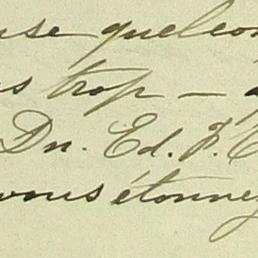 use quelcon
s trop — a
Dr. Ed. F. C
vous étonnez